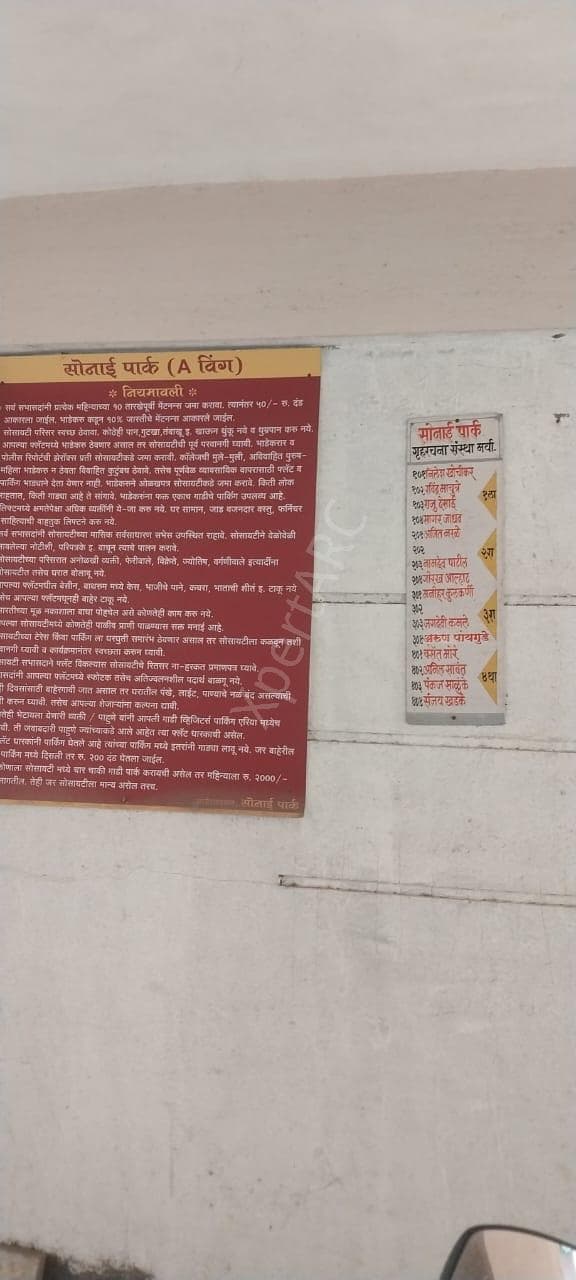 सोनाई पार्क (A विंग)
❊ नियमावली ❊
सर्व सभासदांनी प्रत्येक महिन्याच्या १० तारखेपूर्वी मेंटनन्स जमा करावा. त्यानंतर ५०/- रु. दंड
आकारला जाईल. भाडेकरु कडून १०% जास्तीचे मेंटनन्स आकारले जाईल.
सोसायटी परिसर स्वच्छ ठेवावा. कोठेही पान,गुटखा,तंबाखू इ. खाऊन थुंकू नये व धुम्रपान करु नये.
आपल्या फ्लॅटमध्ये भाडेकरु ठेवणार असाल तर सोसायटीची पूर्व परवानगी घ्यावी. भाडेकरार व
पोलीस रिपोर्टची झेरॉक्स प्रती सोसायटीकडे जमा करावी. कॉलेजची मुले-मुली, अविवाहित पुरुष-
महिला भाडेकरु न ठेवता विवाहित कुटुंबच ठेवावे. तसेच पूर्णवेळ व्यावसायिक वापरासाठी फ्लॅट व
पार्किंग भाड्याने देता येणार नाही. भाडेकरुने ओळखपत्र सोसायटीकडे जमा करावे. किती लोक
राहतात, किती गाड्या आहे ते सांगावे. भाडेकरुंना फक्त एकाच गाडीचे पार्किंग उपलब्ध आहे.
लिफ्टमध्ये क्षमतेपेक्षा अधिक व्यक्तींनी ये-जा करु नये. घर सामान, जाड वजनदार वस्तु, फर्निचर
साहित्याची वाहतुक लिफ्टने करु नये.
सर्व सभासदांनी सोसायटीच्या मासिक सर्वसाधारण सभेस उपस्थित राहावे. सोसायटीने वेळोवेळी
लावलेल्या नोटीशी, परिपत्रके इ. वाचून त्याचे पालन करावे.
सोसायटीच्या परिसरात अनोळखी व्यक्ती, फेरीवाले, विक्रेते, ज्योतिष, वर्गणीवाले इत्यादींना
सोसायटीत तसेच घरात बोलावू नये.
आपल्या फ्लॅटमधील बेसीन, बाथरुम मध्ये केस, भाजीचे पाने, कचरा, भाताची शीतं इ. टाकू नये
तसेच आपल्या फ्लॅटमधूनही बाहेर टाकू नये.
इमारतीच्या मूळ नकाशाला बाधा पोहचेल असे कोणतेही काम करु नये.
आपल्या सोसायटीमध्ये कोणतेही पाळीव प्राणी पाळण्यास सक्त मनाई आहे.
सोसायटीच्या टेरेस किंवा पार्किंग ला घरघुती समारंभ ठेवणार असाल तर सोसायटीला कळवून तशी
परवानगी घ्यावी व कार्यक्रमानंतर स्वच्छता करुन घ्यावी.
सोसायटी सभासदाने फ्लॅट विकल्यास सोसायटीचे रितसर ना-हरकत प्रमाणपत्र घ्यावे.
सभासदांनी आपल्या फ्लॅटमध्ये स्फोटक तसेच अतिज्वलनशील पदार्थ बाळगू नये.
दिवसांसाठी बाहेरगावी जात असाल तर घरातील पंखे, लाईट, पाण्याचे नळ बंद असल्याची
करुन घ्यावी. तसेच आपल्या शेजाऱ्यांना कल्पना द्यावी.
भेटायला येणारी व्यक्ती / पाहुणे यांनी आपली गाडी व्हिजिटर्स पार्किंग एरिया मध्येच
लावावी. ती जबाबदारी पाहुणे ज्यांच्याकडे आले आहेत त्या फ्लॅट धारकाची असेल.
फ्लॅट धारकांनी पार्किंग घेतले आहे त्यांच्या पार्किंग मध्ये इतरांनी गाड्या लावू नये. जर बाहेरील
पार्किंग मध्ये दिसली तर रु. २०० दंड घेतला जाईल.
कोणाला सोसायटी मध्ये चार चाकी गाडी पार्क करायची असेल तर महिन्याला रु. 2000/-
लागतील. तेही जर सोसायटीला मान्य असेल तरच.
सोनाई पार्क
सोनाई पार्क
गृहरचना संस्था मर्या.
१०१ निलेश खांचीकर
१०२
१०३ राजु देसाई
१०४ सागर जाधव
१ला
२०१ अजित नरळे
२०२
२०३ नामदेव पाटील
२०४ गोरख आल्हाट
२रा
३०१ मनोहर कुलकर्णी
३०२
३०३ जगदेवी कमले
३०४ अरुण पायगुडे
३रा
४०१ वसंत मोरे
४०२ अनिल सावंत
४०३ पंकज साळुंके
४०४ संजय खडके
४था
xpertARC